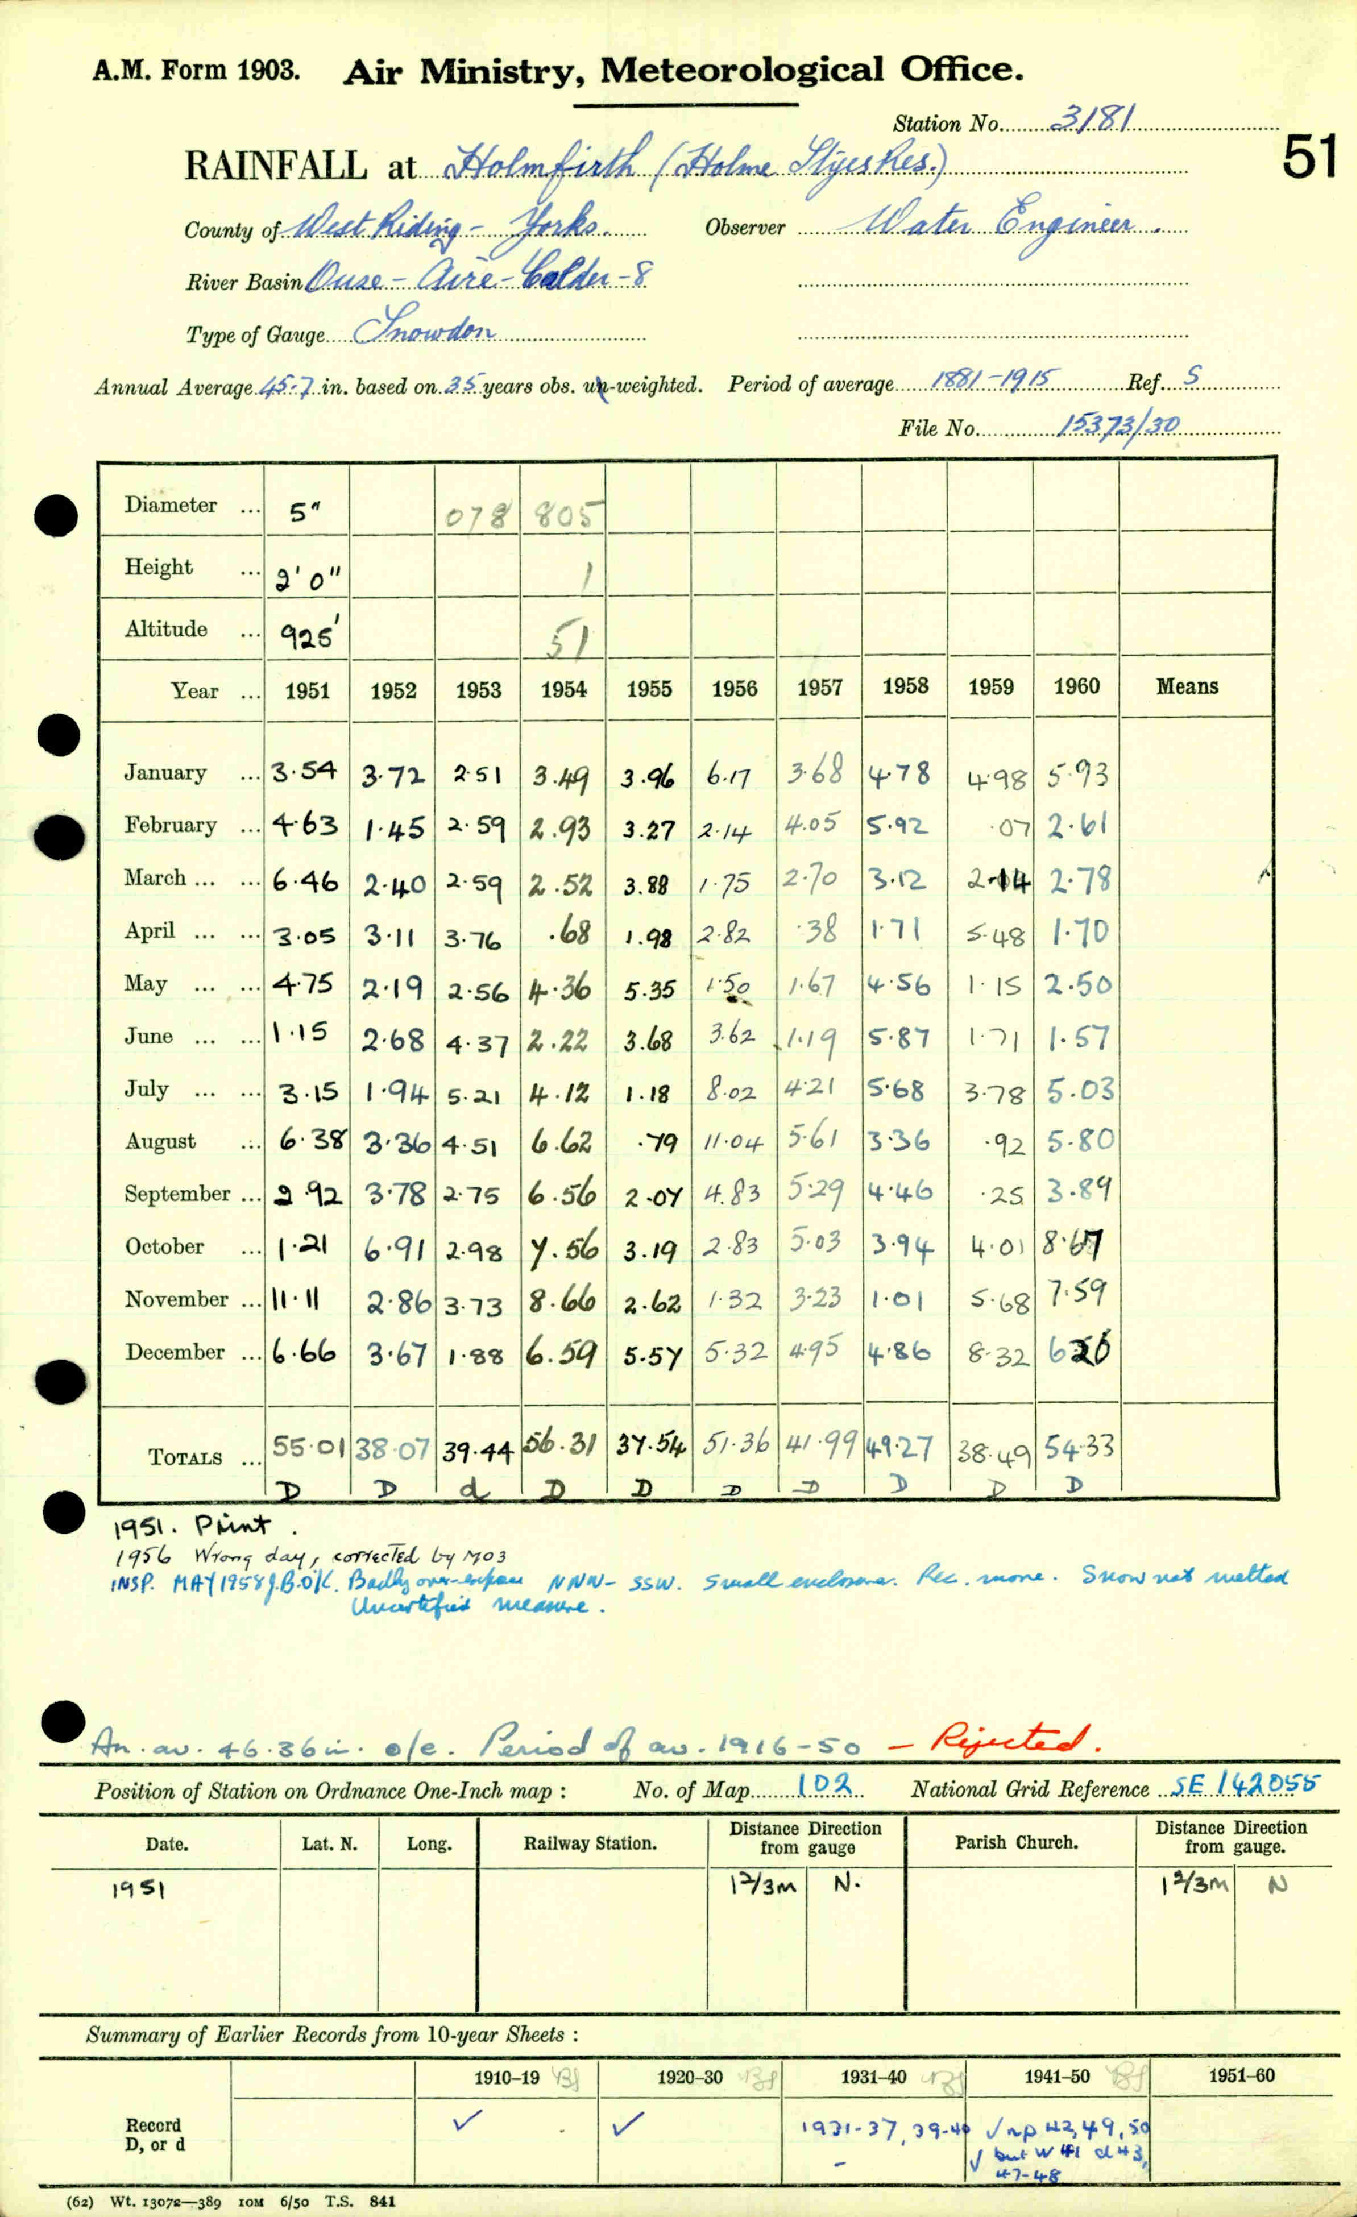 A.M. Form 1903. Air Ministry, Meteorological Office.
Station No. 3181
51
RAINFALL at Holmfirth (Holme Styes Res.)
County of West Riding - Yorks. Observer Water Engineer.
River Basin Ouse - Aire - Calder - 8
Type of Gauge Snowdon
Annual Average 45.7 in. based on 35 years obs. un-weighted. Period of average 1881-1915 Ref. S
File No. 15373/30
Diameter ... 5" 078 805
Height ... 2' 0" 1
Altitude ... 925' 51
Year ... 1951 1952 1953 1954 1955 1956 1957 1958 1959 1960 Means
January ... 3.54 3.72 2.51 3.49 3.96 6.17 3.68 4.78 4.98 5.93
February ... 4.63 1.45 2.59 2.93 3.27 2.14 4.05 5.92 .07 2.61
March ... ... 6.46 2.40 2.59 2.52 3.88 1.75 2.70 3.12 2.14 2.78
April ... ... 3.05 3.11 3.76 .68 1.98 2.82 .38 1.71 5.48 1.70
May ... ... 4.75 2.19 2.56 4.36 5.35 1.50 1.67 4.56 1.15 2.50
June ... ... 1.15 2.68 4.37 2.22 3.68 3.62 1.19 5.87 1.71 1.57
July ... ... 3.15 1.94 5.21 4.12 1.18 8.02 4.21 5.68 3.78 5.03
August ... 6.38 3.36 4.51 6.62 .79 11.04 5.61 3.36 .92 5.80
September ... 2.92 3.78 2.75 6.56 2.07 4.83 5.29 4.46 .25 3.89
October ... 1.21 6.91 2.98 7.56 3.19 2.83 5.03 3.94 4.01 8.67
November ... 11.11 2.86 3.73 8.66 2.62 1.32 3.23 1.01 5.68 7.59
December ... 6.66 3.67 1.88 6.59 5.57 5.32 4.95 4.86 8.32 6.26
TOTALS ... 55.01 38.07 39.44 56.31 37.54 51.36 41.99 49.27 38.49 54.33
D D d D D D D D D D
1951. Print.
1956 Wrong day, corrected by MO3
INSP. MAY 1958 J.B.O'K. Badly over-expose NNW - SSW. Small enclosure. Rec. move. Snow not melted
Uncertified measure.
An. av. 46.36 in. o/e. Period of av. 1916-50 - Rejected.
Position of Station on Ordnance One-Inch map : No. of Map 102 National Grid Reference SE 142055
Date. Lat. N. Long. Railway Station. Distance Direction from gauge Parish Church. Distance Direction from gauge.
1951 1 2/3 m N. 1 2/3 m N
Summary of Earlier Records from 10-year Sheets :
1910-19 1920-30 1931-40 1941-50 1951-60
Record D, or d ✓ ✓ 1931-37, 39-40 - ✓ np 42, 49, 50
✓ but W 41 d 43,
47-48
(62) Wt. 13072—389 10M 6/50 T.S. 841